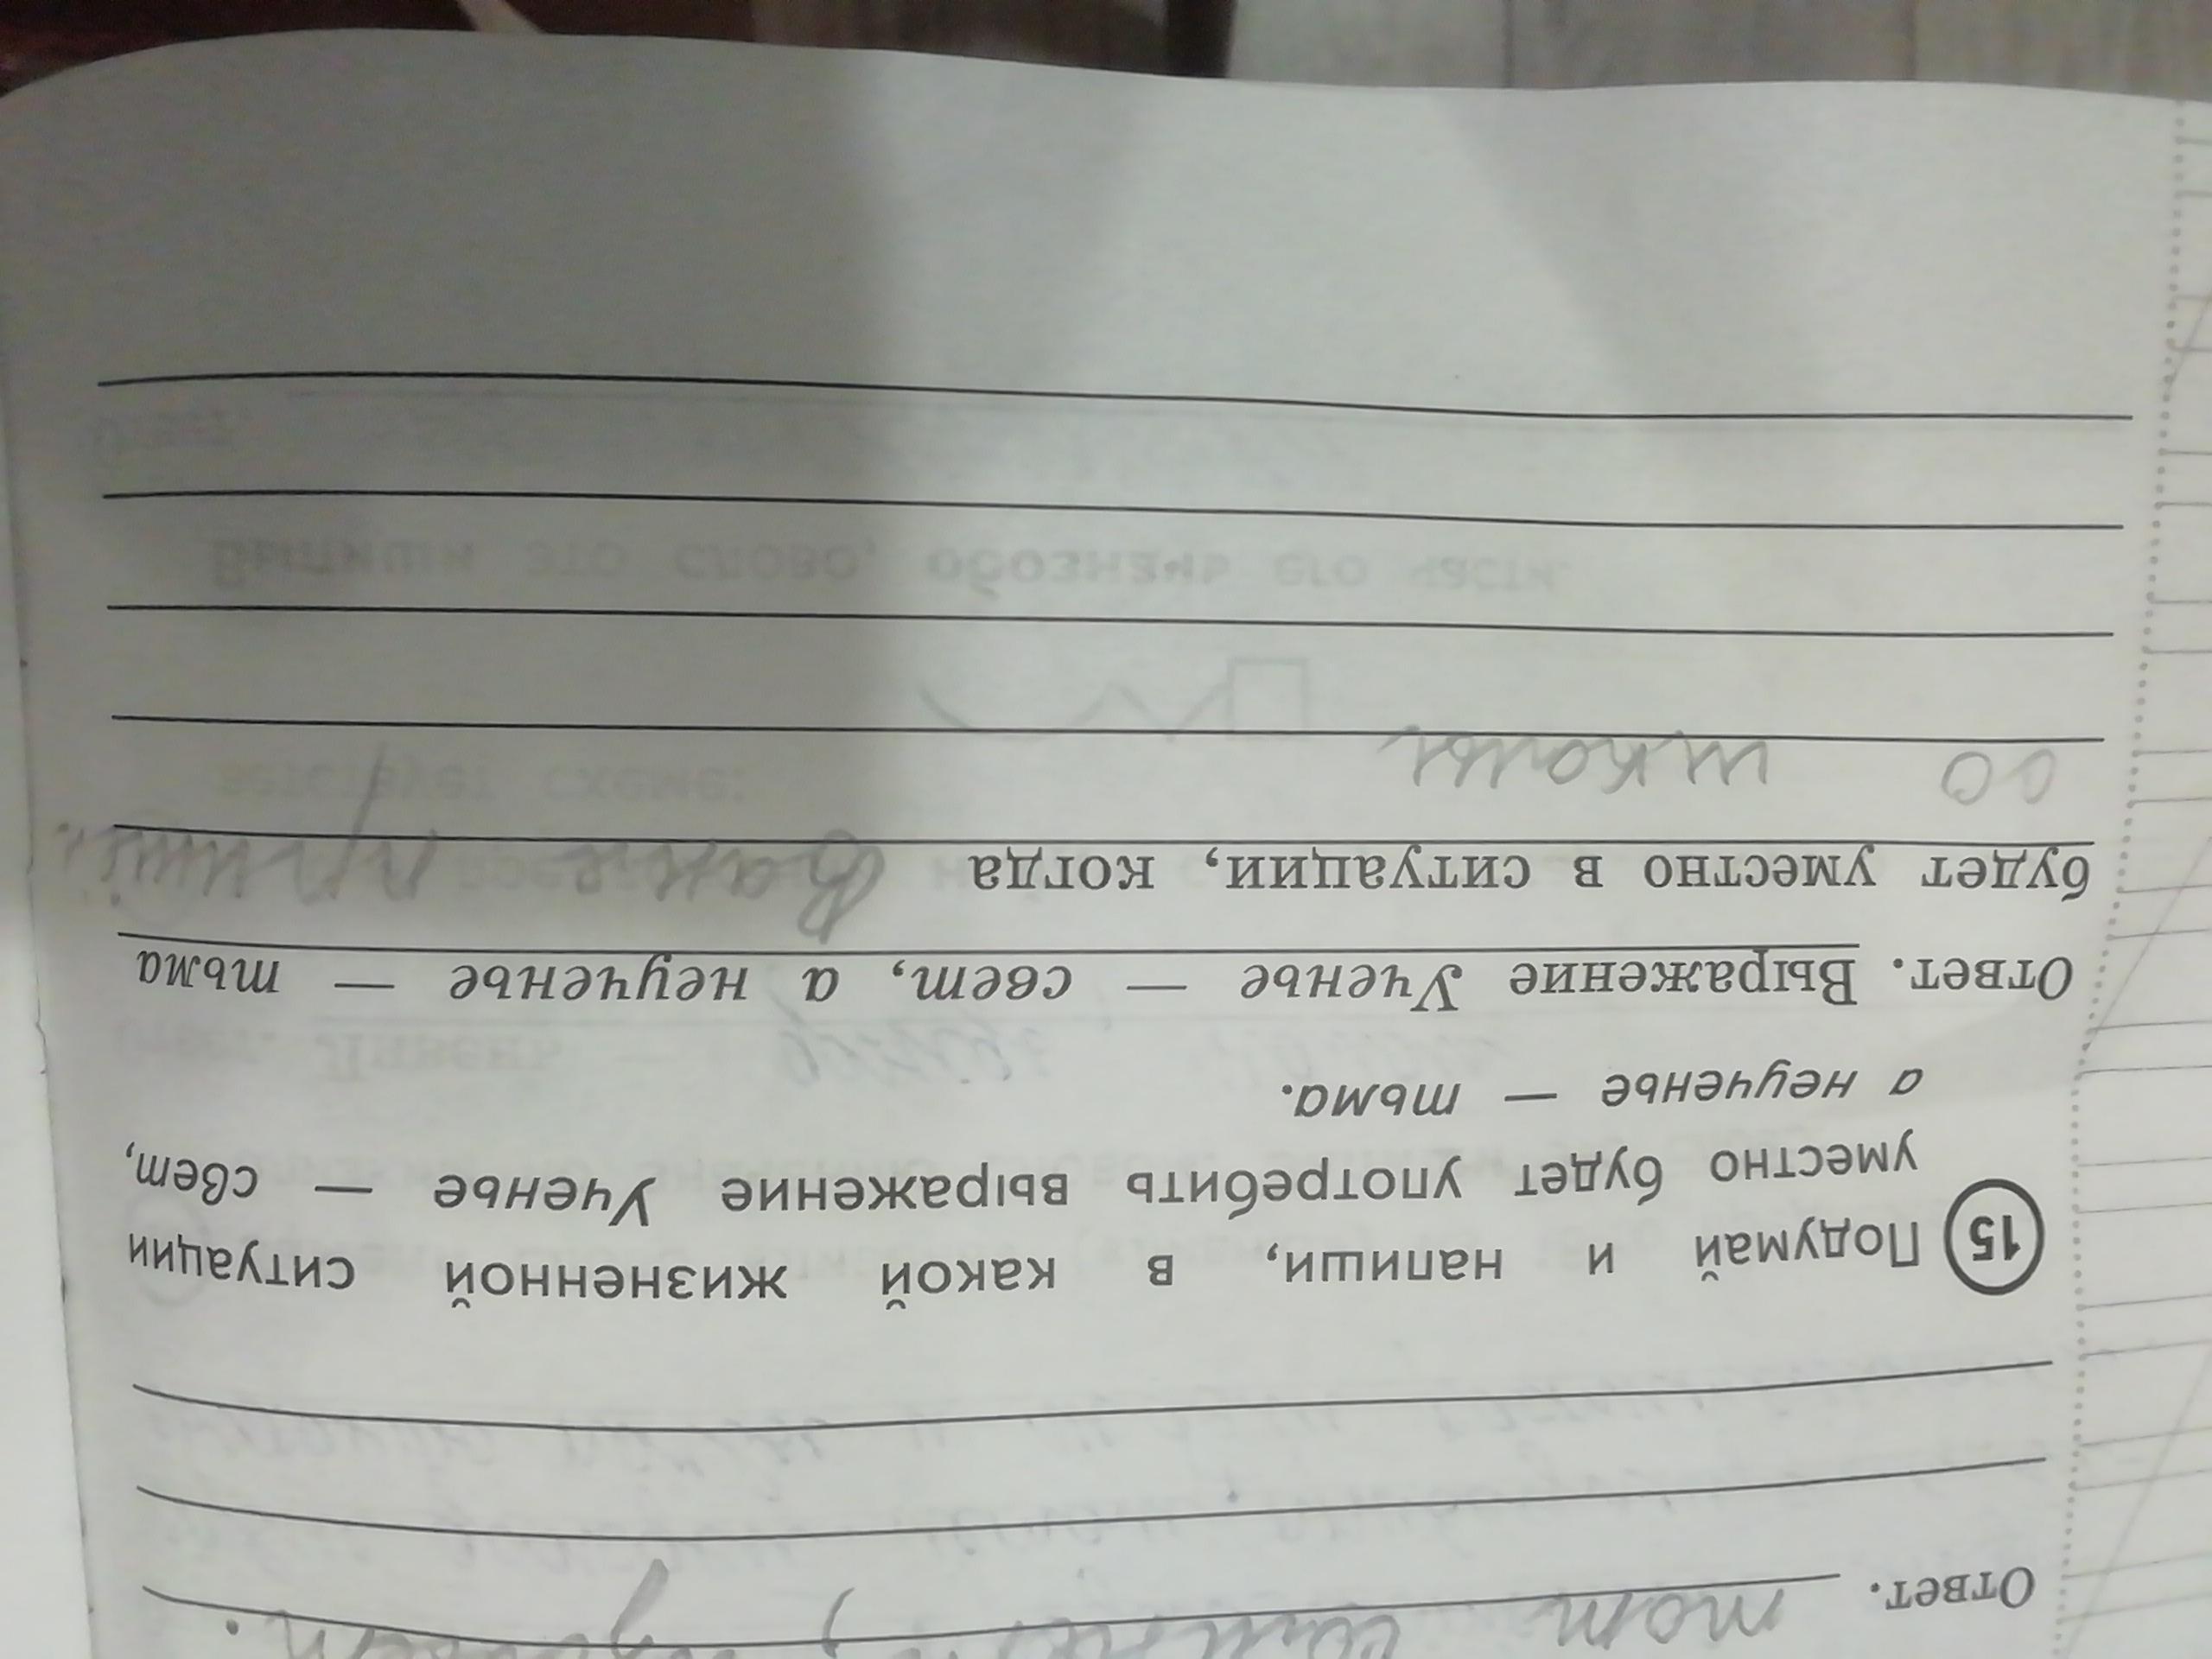 Ответ. тот
15 Подумай и напиши, в какой жизненной ситуации
уместно будет употребить выражение Ученье — свет,
а неученье — тьма.
Ответ. Выражение Ученье — свет, а неученье — тьма
будет уместно в ситуации, когда Ване
со школы